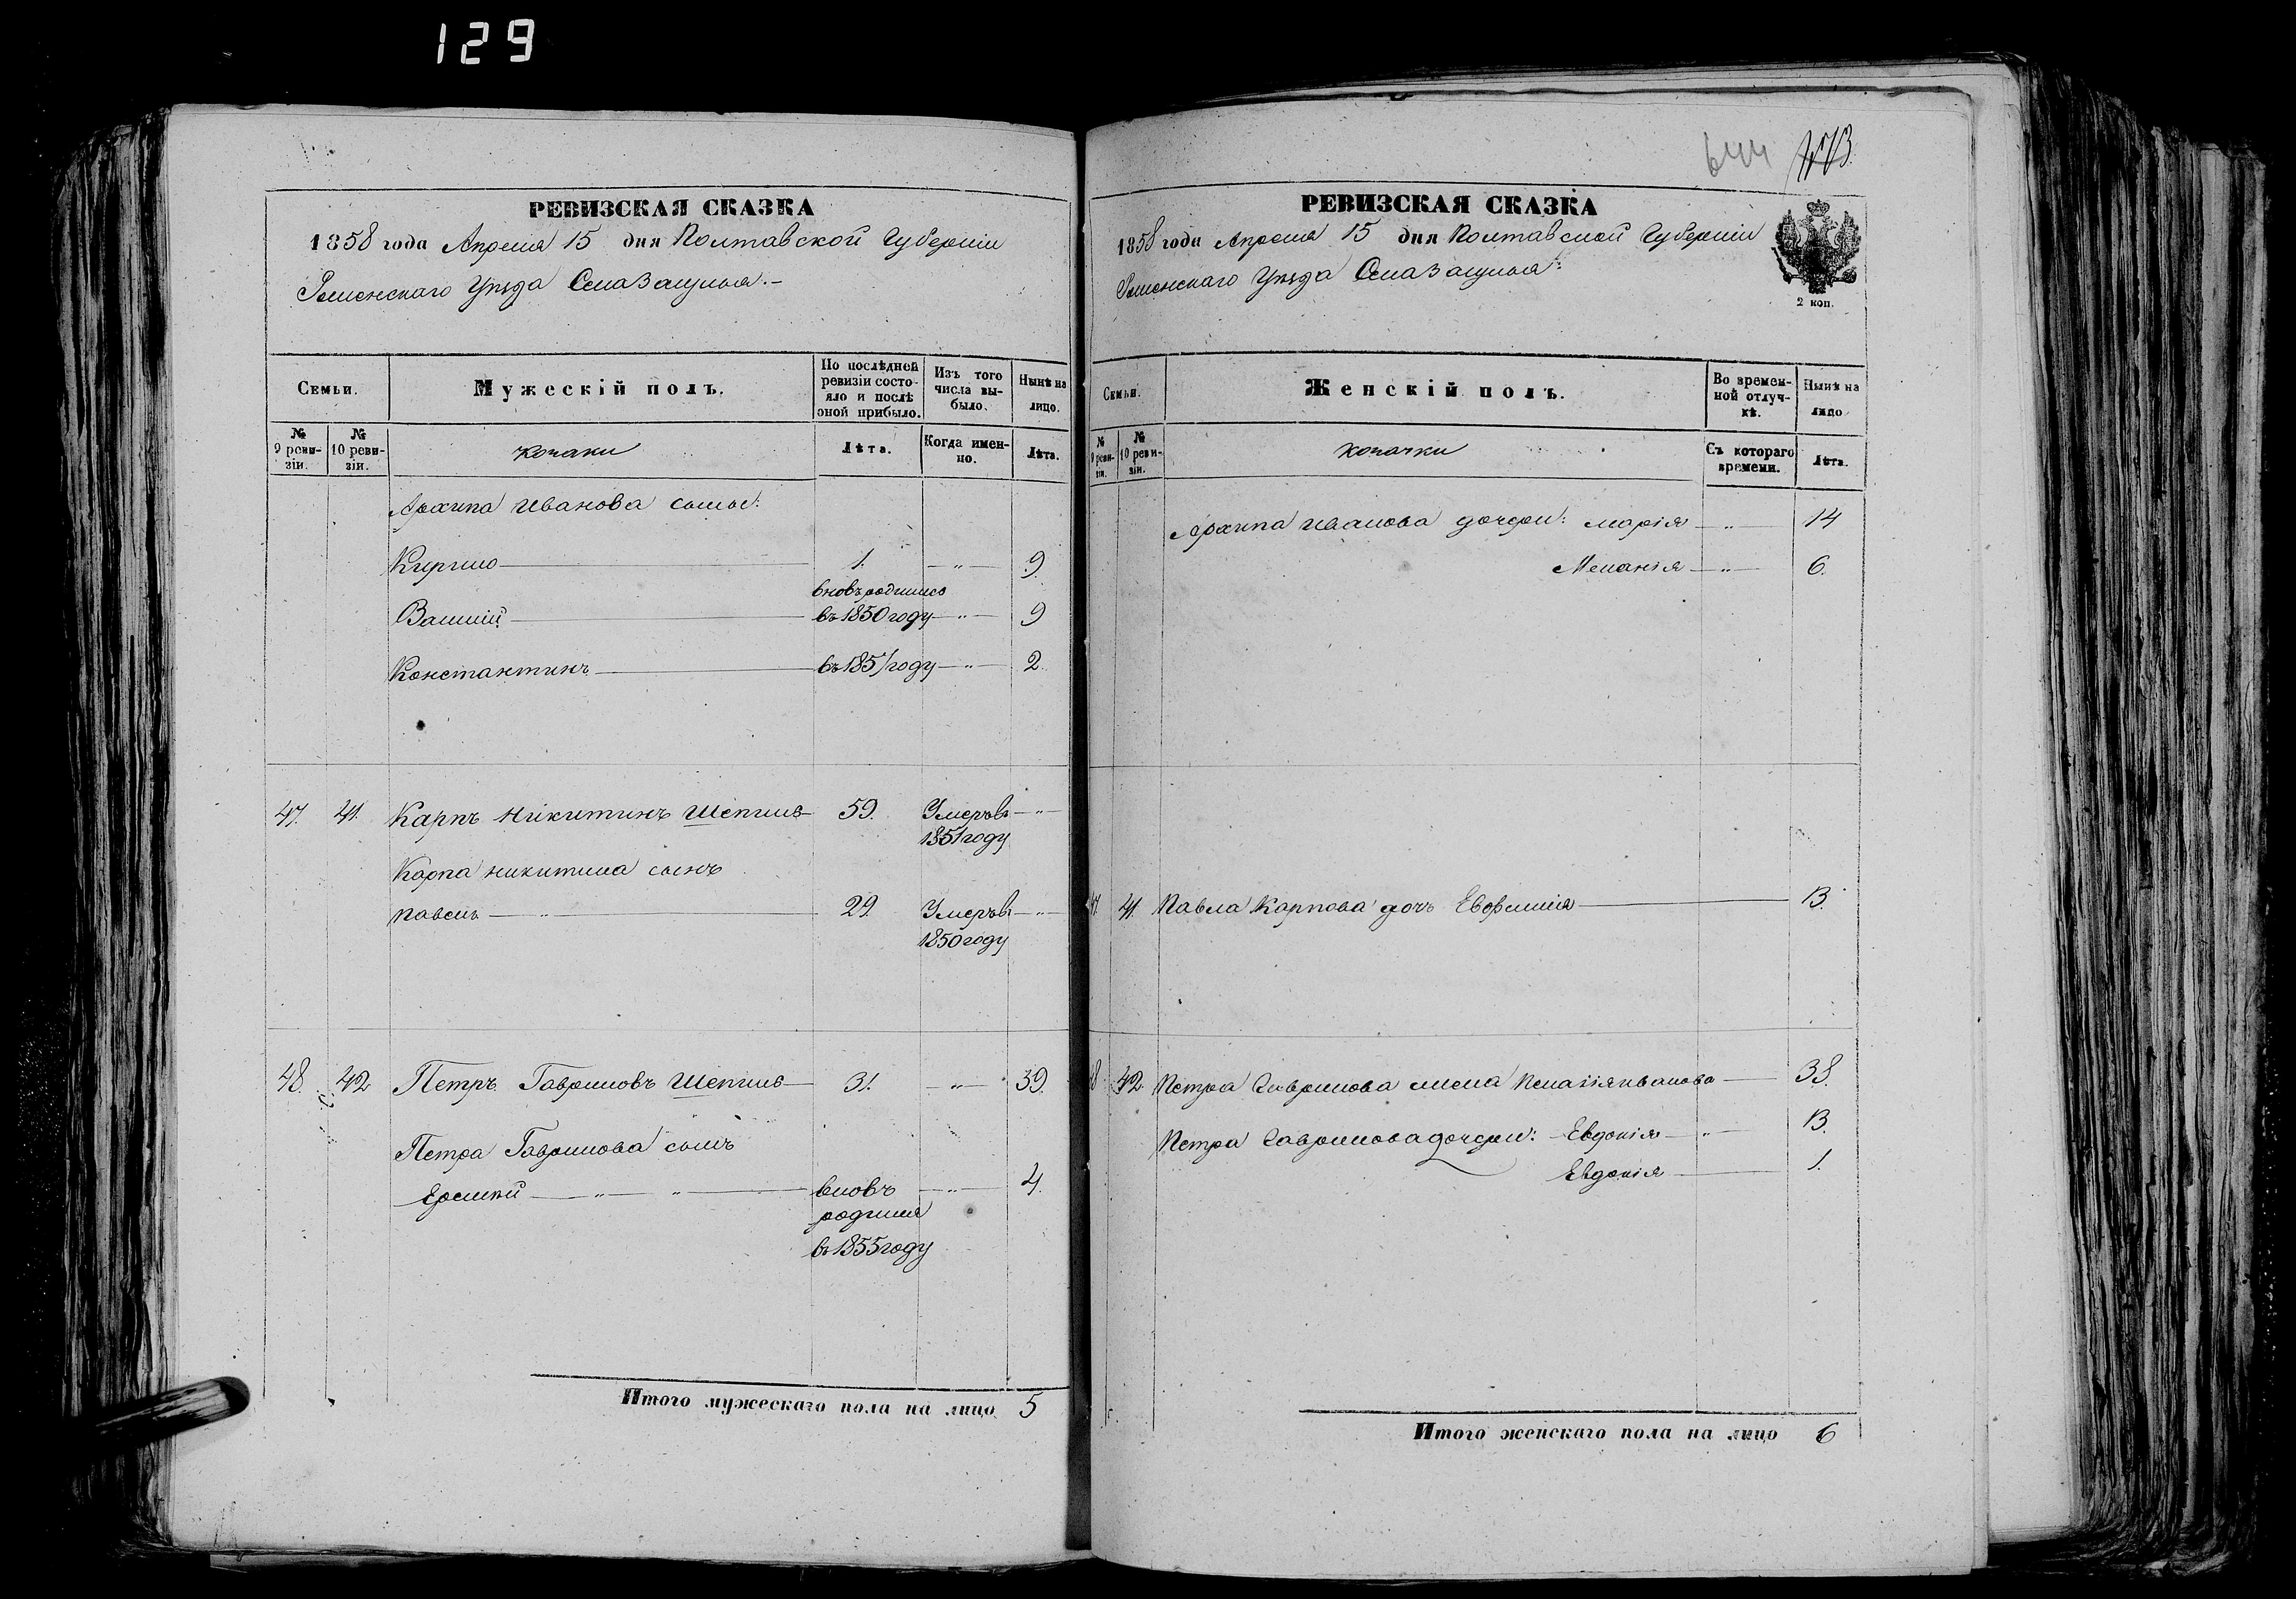 129
РЕВИЗСКАЯ СКАЗКА
1858 года Апреля 15 дня Полтавской Губерніи
Роменскаго Уѣзда Села
Семьи.
Мужескій полъ.
По послѣдней ревизіи состояло и послѣ оной прибыло.
Изъ того числа выбыло.
Нынѣ на лицо.
№ 9 ревизіи.
№ 10 ревизіи.
козаки
Лѣта.
Когда именно.
Лѣта.
Архипа Иванова сыны:
Кирило 1. " 9.
вновь родились
Василій въ 1850 году " 9
Константинъ въ 1857 году " 2.
47. 41. Карпъ Никитинъ 59. Умеръ въ "
1851 году
Карпа Никитина сынъ
Павелъ " 29. Умеръ въ "
1850 году
48. 42 Петръ Гавриловъ 31. " 39.
Петра Гаврилова сынъ
" " вновь " 4.
родился
въ 1855 году
Итого мужескаго пола на лицо 5
644
РЕВИЗСКАЯ СКАЗКА
1858 года Апреля 15 дня Полтавской Губерніи
Роменскаго Уѣзда Села
2 коп.
Семьи.
Женскій полъ.
Во временной отлучкѣ.
Нынѣ на лицо
№ 9 ревизіи.
№ 10 ревизіи.
козачки
Съ котораго времени.
Лѣта.
Архипа Иванова дочери: Марія " 14
Меланія " 6.
41. Павла Карпова дочь Евфимія 13.
42 Петра Гаврилова жена Пелагія Иванова 38.
Петра Гаврилова дочери: Евдокія " 13.
Евдокія 1.
Итого женскаго пола на лицо 6